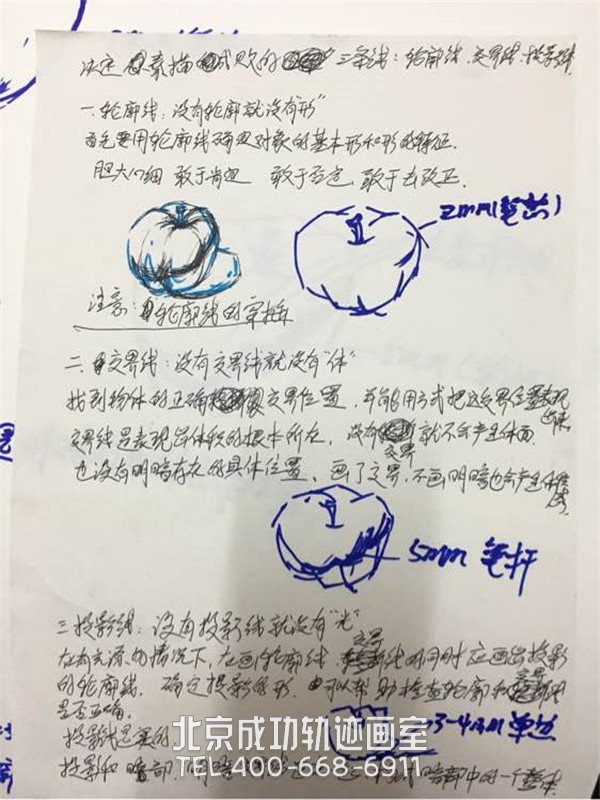 决定素描成败的三条线：轮廓线、交界线、投影线
一.轮廓线：没有轮廓就没有"形"
首先要用轮廓线确定对象的基本形和形的特征.
胆大心细 敢于肯定 敢于否定，敢于去改正.
2mm(笔芯)
注意：轮廓线的穿插
二.交界线：没有交界线就没有"体"
找到物体的正确交界位置，并能用方式把这交界位置表现出来
交界线是表现出体积的根本所在，没有交界就不会产生体面.
也没有明暗存在的具体位置、画了交界，不画明暗也会产生体积
5mm 笔杆
三.投影线：没有投影线就没有"光"
在有光源的情况下，在画轮廓线，交界线的同时应画出投影
的轮廓线。确定投影外形，可以帮助检查轮廓和交界
是否正确.
3-4mm 单边
投影线是
北京成功轨迹画室
投影和暗部，
TEL:400-668-6911
暗部中的一个整体